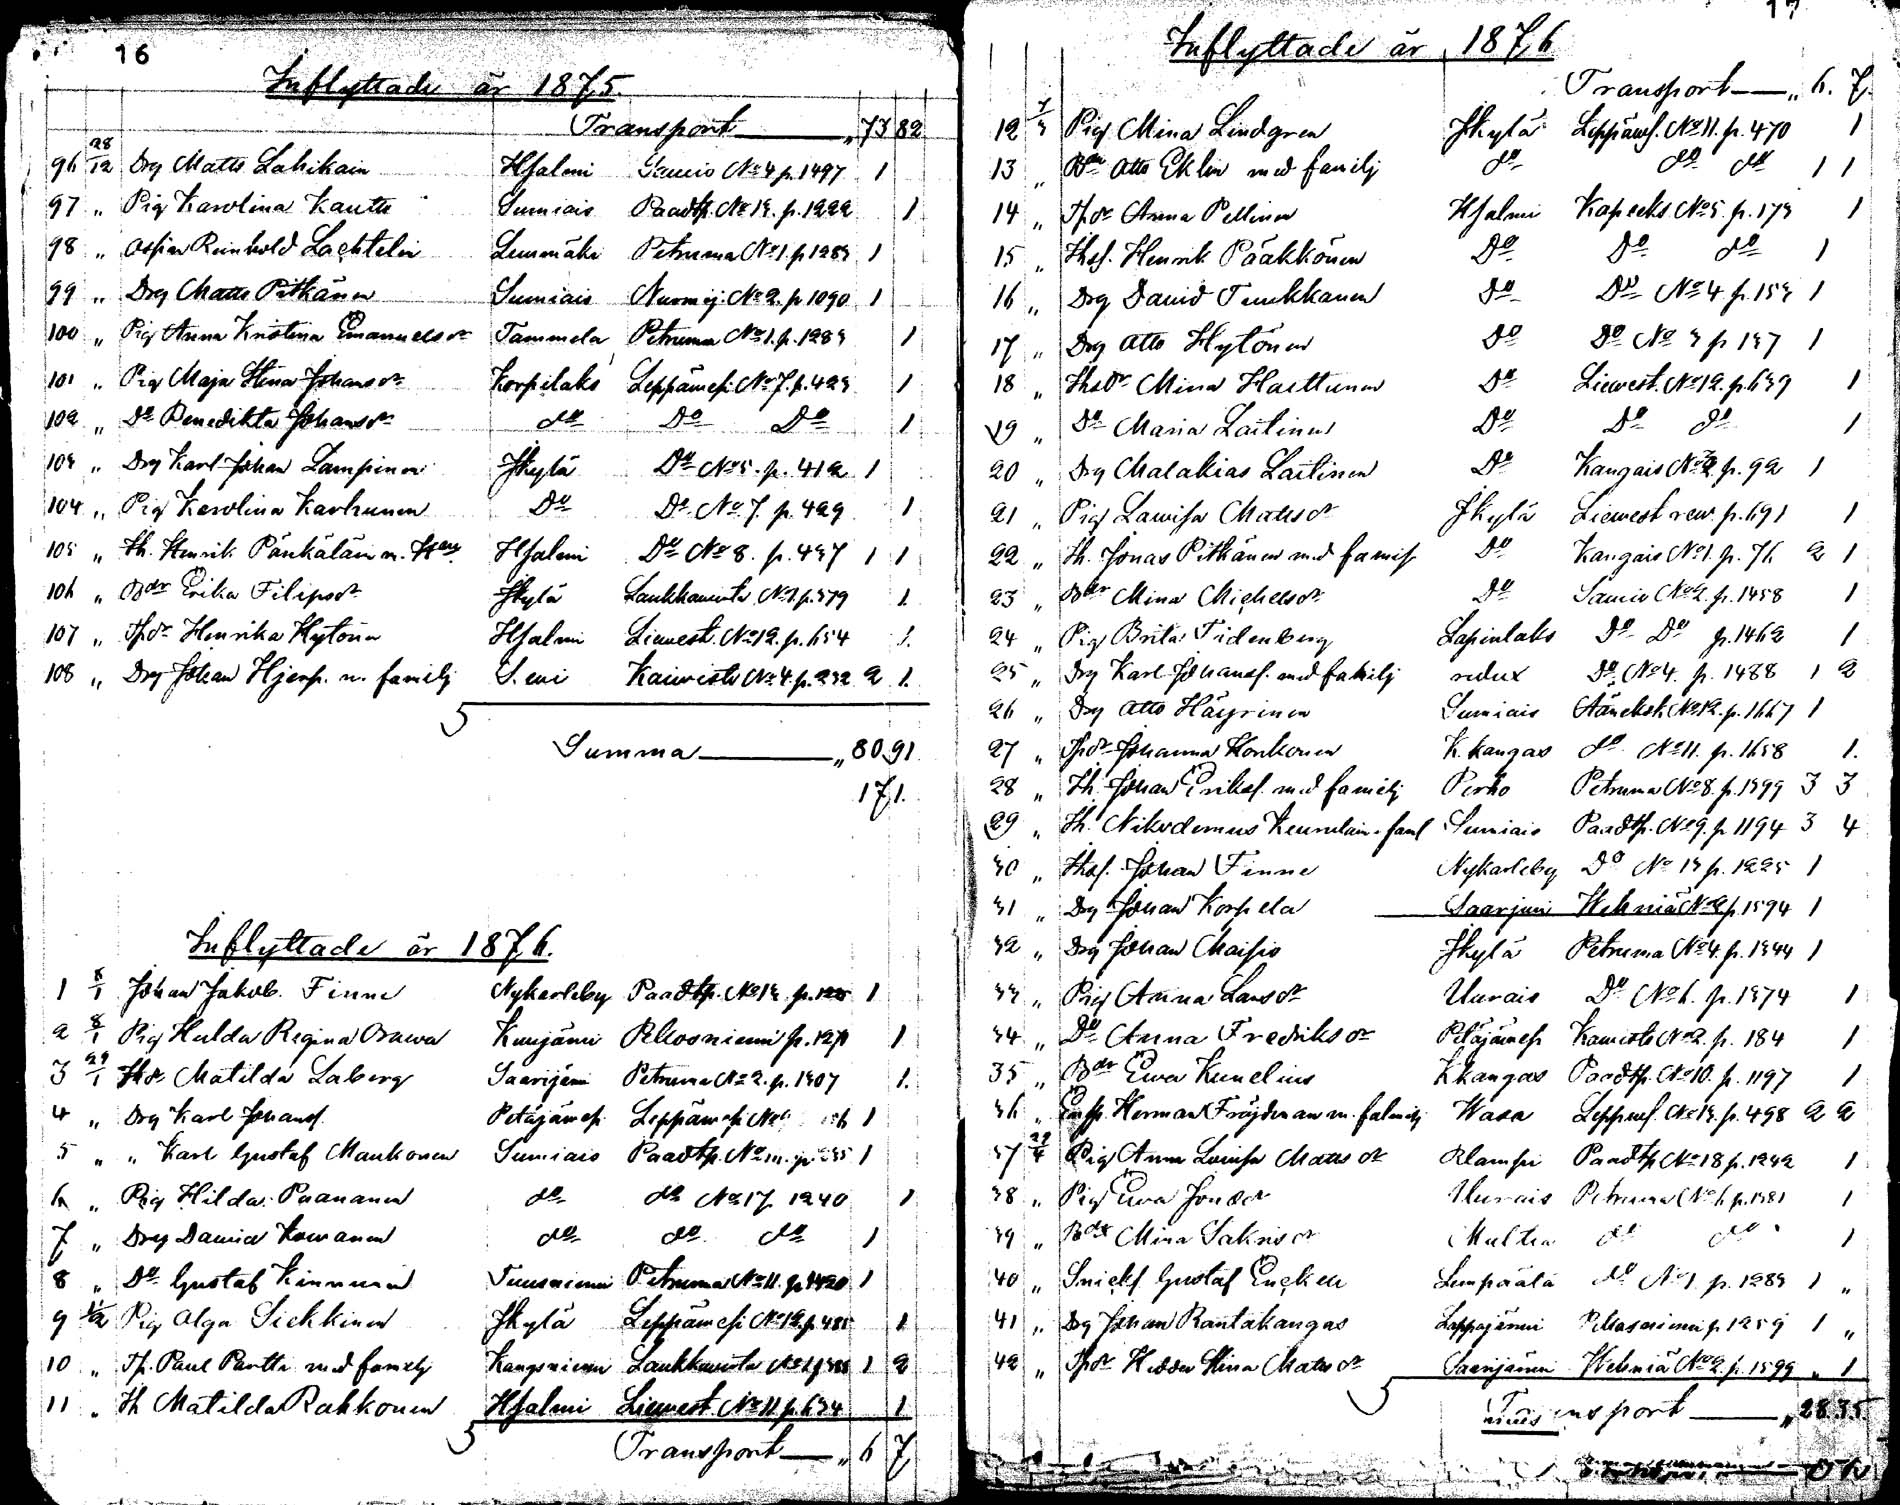 16
Inflyttade år 1875.
Transport „ 73 82
96 28/12 Drg Matts Lahikain Hjalmi Saucio No 4 p. 1497 1
97 „ Pig Karolina Kautto Sumiais Paadtp. No 13. p. 1222 1
98 „ Reinhold Lachtelin Petruma No 1. p. 1283 1
99 „ Drg Matts Pitkänen Sumiais Nurmij. No 2. p. 1090 1
100 „ Pig Anna Kristina Emanuelsdr Tammela Petruma No 1. p. 1283 1
101 „ Pig Maja Stina Johansdr Korpilaks Leppämesp. No 7. p. 423 1
102 „ Do Benedikta Johansdr do Do Do 1
103 „ Drg Karl Johan Lampinen Jkylä Do No 5. p. 412 1
104 „ Pig Karolina Karhunen Do Do No 7. p. 429 1
105 „ Th. Henrik Pänkäläin m. Hjalmi Do No 8. p. 437 1 1
106 „ Bdr Erika Filipsdr Jkylä Laukkavirta No 1. p. 379 1
107 „ Tpdr Henrika Hytönen Hjalmi Liewest. No 12. p. 654 1.
108 „ Drg Johan Hjerp. m. familj Kaiwisto No 4. p. 232 2 1.
Summa „ 80 91
171.
Inflyttade år 1876.
1 8/1 Johan Jakob Finne Nykarleby Paadtp. No 13. p. 1 1
2 8/1 Pig Hulda Regina Orawa Pelkosniemi p. 127 1
3 29/1 Matilda Laberg Saarijärvi Petruma No 2. p. 1307 1.
4 „ Drg Karl Johansf. Petäjämesp. Leppämesp. No 1
5 „ „ Karl Gustaf Maukonen Sumiais Paadtp. No 1
6 „ Pig Hilda Paananen do do No 17 1240 1
7 „ Drg David Kowanen do do do 1
8 „ Do Gustaf Kinnunen Petruma No 11. p. 1420 1
9 1/2 Pig Olga Siekkinen Jkylä Leppämesp. No 12. p. 485 1
10 „ Tp. Paul Partti med familj Kangsniemi Laukkavirta No 1 1 2
11 „ Th Matilda Rahkonen Hjalmi Liewest. No 11. p. 634 1
Transport „ 6 7
17
Inflyttade år 1876
Transport „ 6. 7.
12 Pig Mina Lindgren Jkylä Leppämf. No 11. p. 470 1
13 „ Bdr Otto Eklin med familj do do do 1 1
14 „ Tpdr Anna Pellinen Hjalmi Kapeeks No 5. p. 173 1
15 „ Thsf. Henrik Pääkkönen Do Do do 1
16 „ Drg David Tenkkanen Do Do No 4 p. 153 1
17 „ Drg Otto Hytönen Do Do No 3 p 137 1
18 „ Thsdr Mina Hasttunen Do Liewest. No 12. p. 639 1
19 „ Do Maria Laitinen Do Do do 1
20 „ Drg Malakias Laitinen Do Kangais No 2. p. 92 1
21 „ Pig Lawisa Matsdr Jkylä Liewest rew. p. 691 1
22 „ Th. Jonas Pitkänen med familj Do Kangais No 1. p. 76 2 1
23 „ Bdr Mina Michelsdr Do Saucio No 2. p. 1458 1
24 „ Pig Brita Tidenberg Lapinlaks Do Do p. 1462 1
25 „ Drg Karl Johansf. med familj redux Do No 4. p. 1488 1 2
26 „ Drg Otto Häyrinen Sumiais Äänekosk. No 12. p. 1667 1
27 „ Tpdr Johanna Konkonen K.kangas do No 11. p. 1658 1.
28 „ Th. Johan Eriksf. med familj Perho Petruma No 8. p. 1399 3 3
29 „ Th. Nikodemus Keurulain. faml Sumiais Paadtp. No 9. p 1194 3 4
30 „ Thsf. Johan Finne Nykarleby Do No 13 p. 1225 1
31 „ Drg Johan Korpela Saarjuri Wehniä No 2 p. 1594 1
32 „ Drg Johan Maisio Jkylä Petruma No 4. p. 1344 1
33 „ Pig Anna Larsdr Uurais Do No 6. p. 1374 1
34 „ Do Anna Fredriksdr Petäjämesp Kawisto No 2. p. 184 1
35 „ Bdr Ewa Kunelius K.kangas Paadtp. No 10. p. 1197 1
36 „ Herman Fröjdman m. familj Wasa Leppmf. No 13. p. 498 2 2
37 29/4 Pig Anna Lowisa Matsdr Klampi Paadtp No 18 p. 1242 1
38 „ Pig Ewa Jonsdr Uurais Petruma No 6. p. 1381 1
39 „ Bdr Mina Sakrisdr Multia do do 1
40 „ Snickf Gustaf Encken Lempäälä do No 1. p. 1283 1 „
41 „ Drg Johan Rantakangas Lappajärvi Pelkosniemi p. 1259 1 „
42 „ Tpdr Hedda Stina Matsdr Saarijärvi Wehniä No 2. p. 1599 „ 1
Transport „ 28.35.